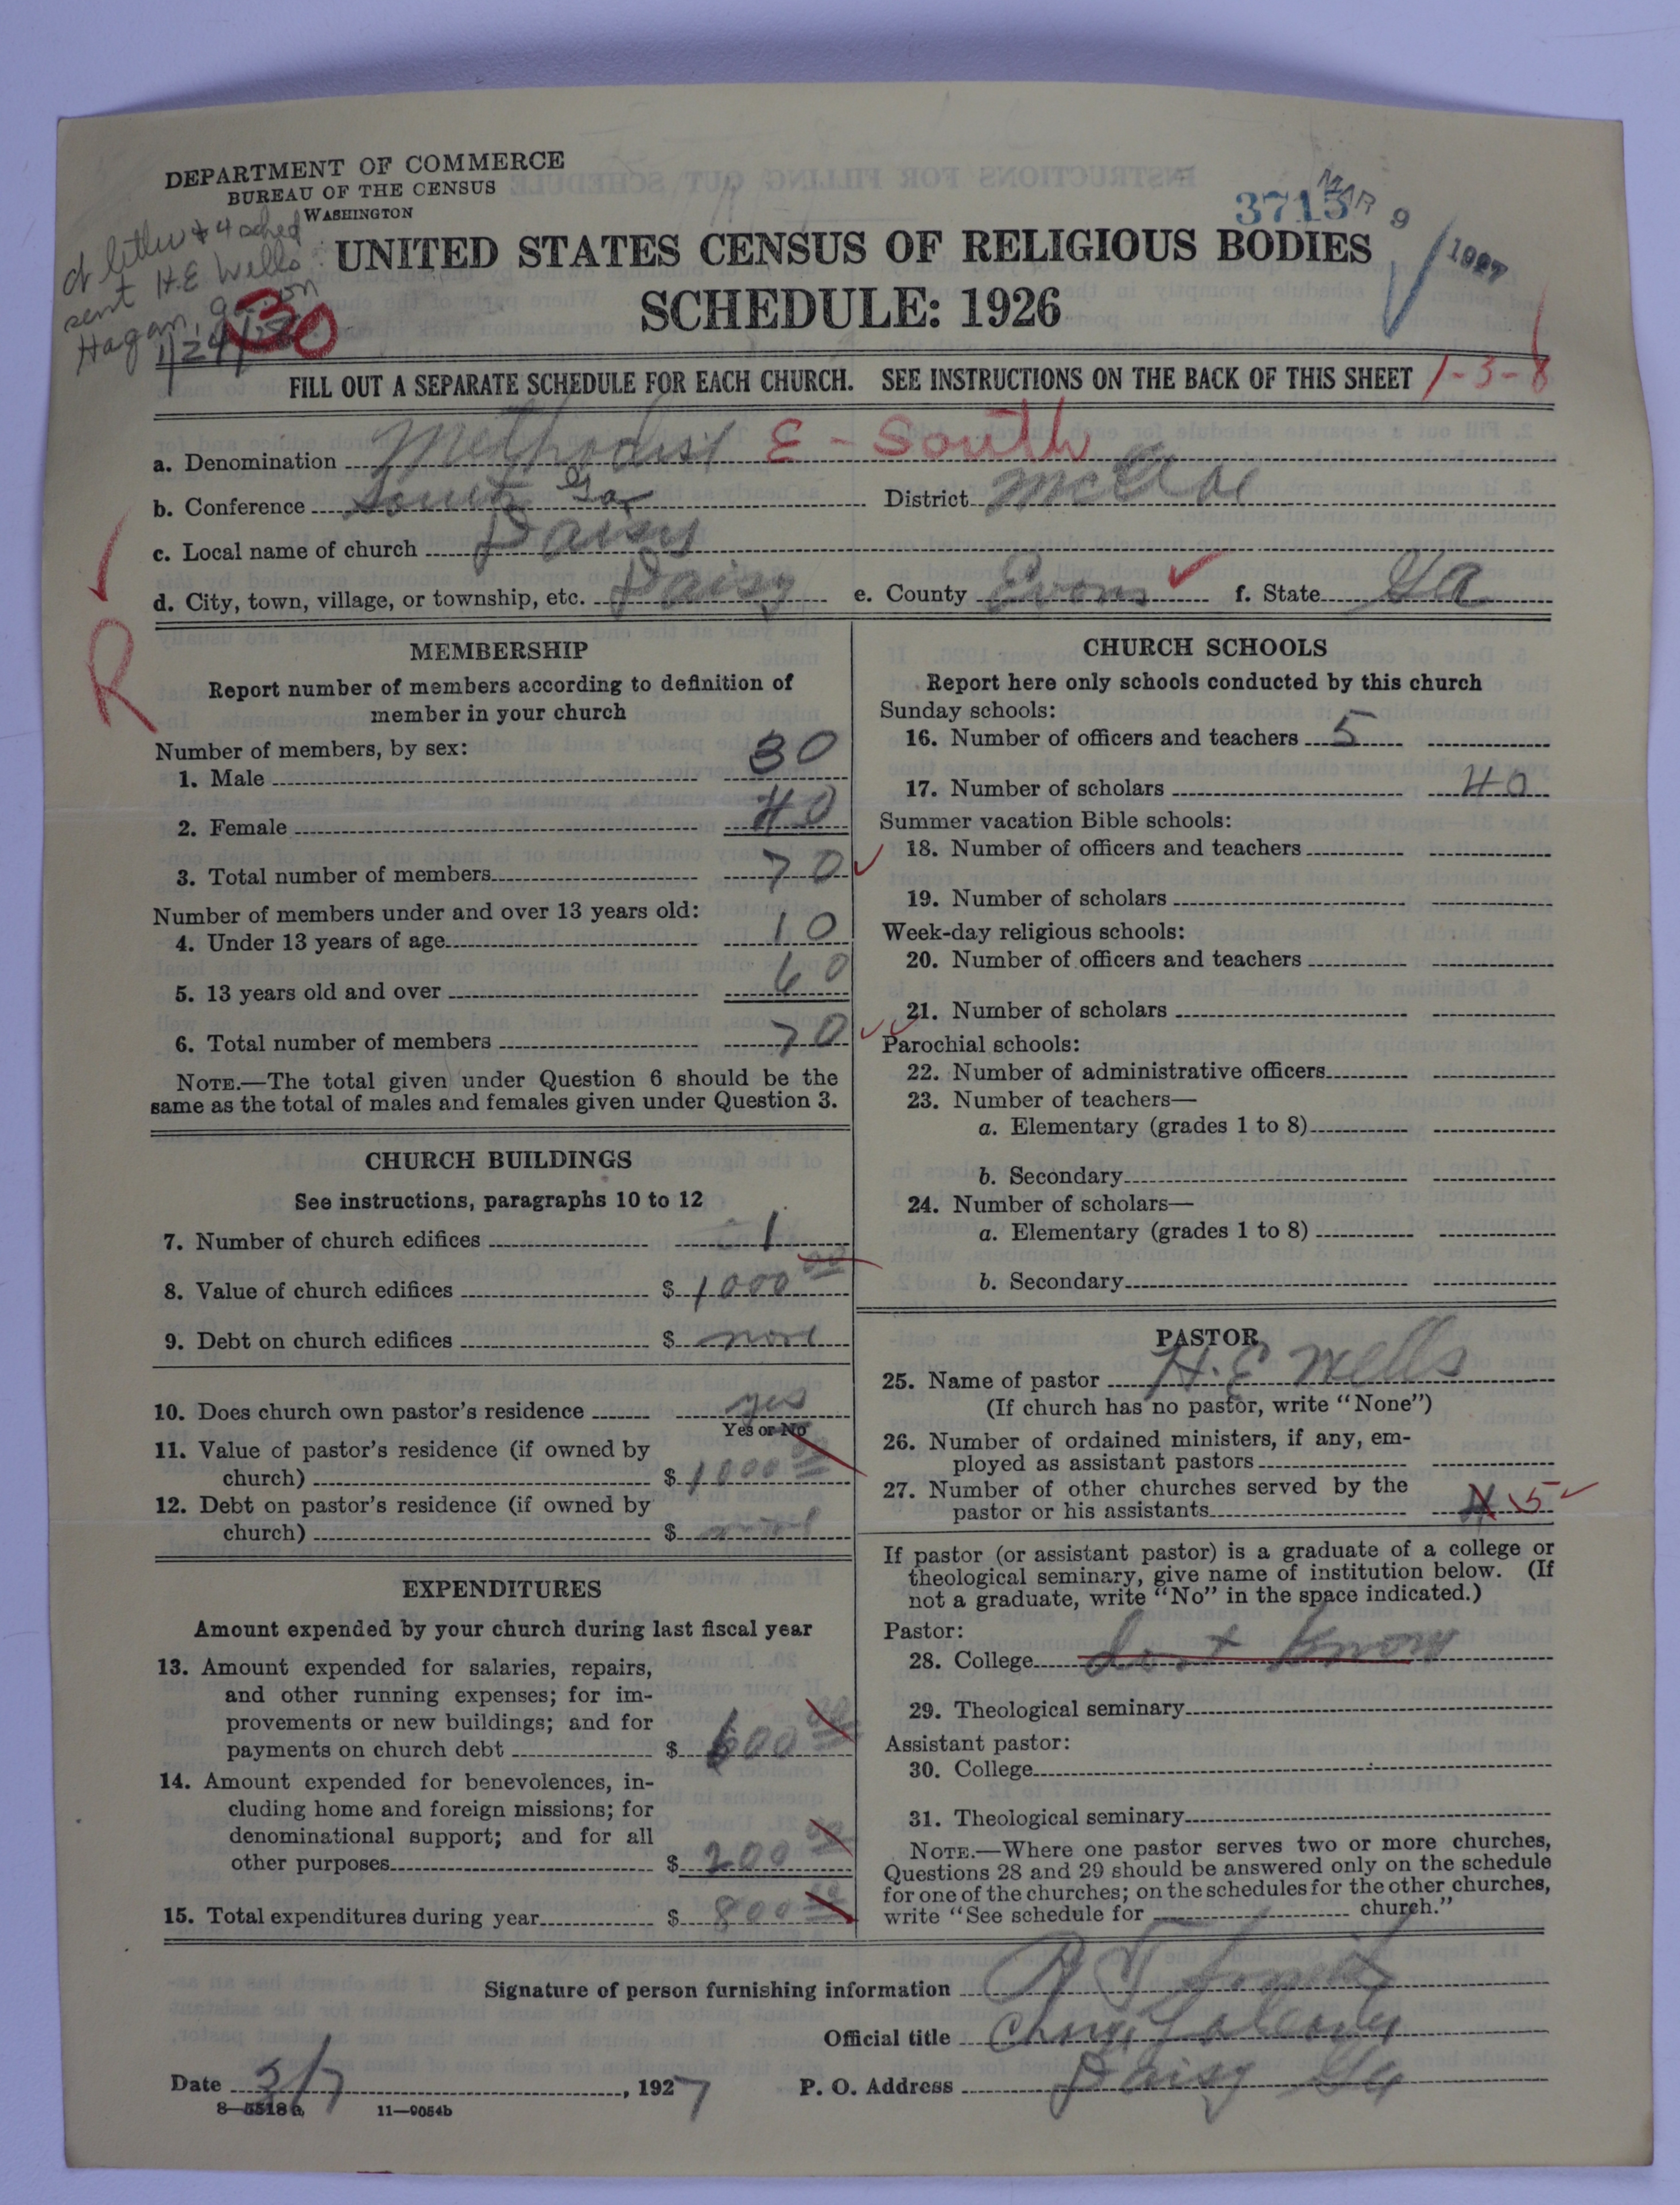 DEPARTMENT OF COMMERCE
BUREAU OF THE CENSUS
WASHINGTON
3713
MAR 9 1927
sent H.E Wells
Hagan, ga. on
30
UNITED STATES CENSUS OF RELIGIOUS BODIES
SCHEDULE: 1926
FILL OUT A SEPARATE SCHEDULE FOR EACH CHURCH. SEE INSTRUCTIONS ON THE BACK OF THIS SHEET 1-3-8
a. Denomination Methodist E - South
b. Conference South Ga District McRae
c. Local name of church Daisy
d. City, town, village, or township, etc. Daisy e. County Evans f. State Ga
R
MEMBERSHIP
Report number of members according to definition of
member in your church
Number of members, by sex:
1. Male 30
2. Female 40
3. Total number of members 70
Number of members under and over 13 years old:
4. Under 13 years of age 10
5. 13 years old and over 60
6. Total number of members 70
NOTE.—The total given under Question 6 should be the
same as the total of males and females given under Question 3.
CHURCH BUILDINGS
See instructions, paragraphs 10 to 12
7. Number of church edifices 1
8. Value of church edifices $ 1000 00
9. Debt on church edifices $ none
10. Does church own pastor's residence yes
Yes or No
11. Value of pastor's residence (if owned by
church) $ 1000 00
12. Debt on pastor's residence (if owned by
church) $ none
EXPENDITURES
Amount expended by your church during last fiscal year
13. Amount expended for salaries, repairs,
and other running expenses; for im-
provements or new buildings; and for
payments on church debt $ 600 00
14. Amount expended for benevolences, in-
cluding home and foreign missions; for
denominational support; and for all
other purposes $ 200 00
15. Total expenditures during year $ 800 00
CHURCH SCHOOLS
Report here only schools conducted by this church
Sunday schools:
16. Number of officers and teachers 5
17. Number of scholars 40
Summer vacation Bible schools:
18. Number of officers and teachers
19. Number of scholars
Week-day religious schools:
20. Number of officers and teachers
21. Number of scholars
Parochial schools:
22. Number of administrative officers
23. Number of teachers—
a. Elementary (grades 1 to 8)
b. Secondary
24. Number of scholars—
a. Elementary (grades 1 to 8)
b. Secondary
PASTOR
25. Name of pastor H. E Wells
(If church has no pastor, write "None")
26. Number of ordained ministers, if any, em-
ployed as assistant pastors
27. Number of other churches served by the
pastor or his assistants 4 5
If pastor (or assistant pastor) is a graduate of a college or
theological seminary, give name of institution below. (If
not a graduate, write "No" in the space indicated.)
Pastor:
28. College dont know
29. Theological seminary
Assistant pastor:
30. College
31. Theological seminary
NOTE.—Where one pastor serves two or more churches,
Questions 28 and 29 should be answered only on the schedule
for one of the churches; on the schedules for the other churches,
write "See schedule for church."
Signature of person furnishing information
Official title
Date 3/7, 1927 P. O. Address Daisy Ga
8—5518a 11—9054b